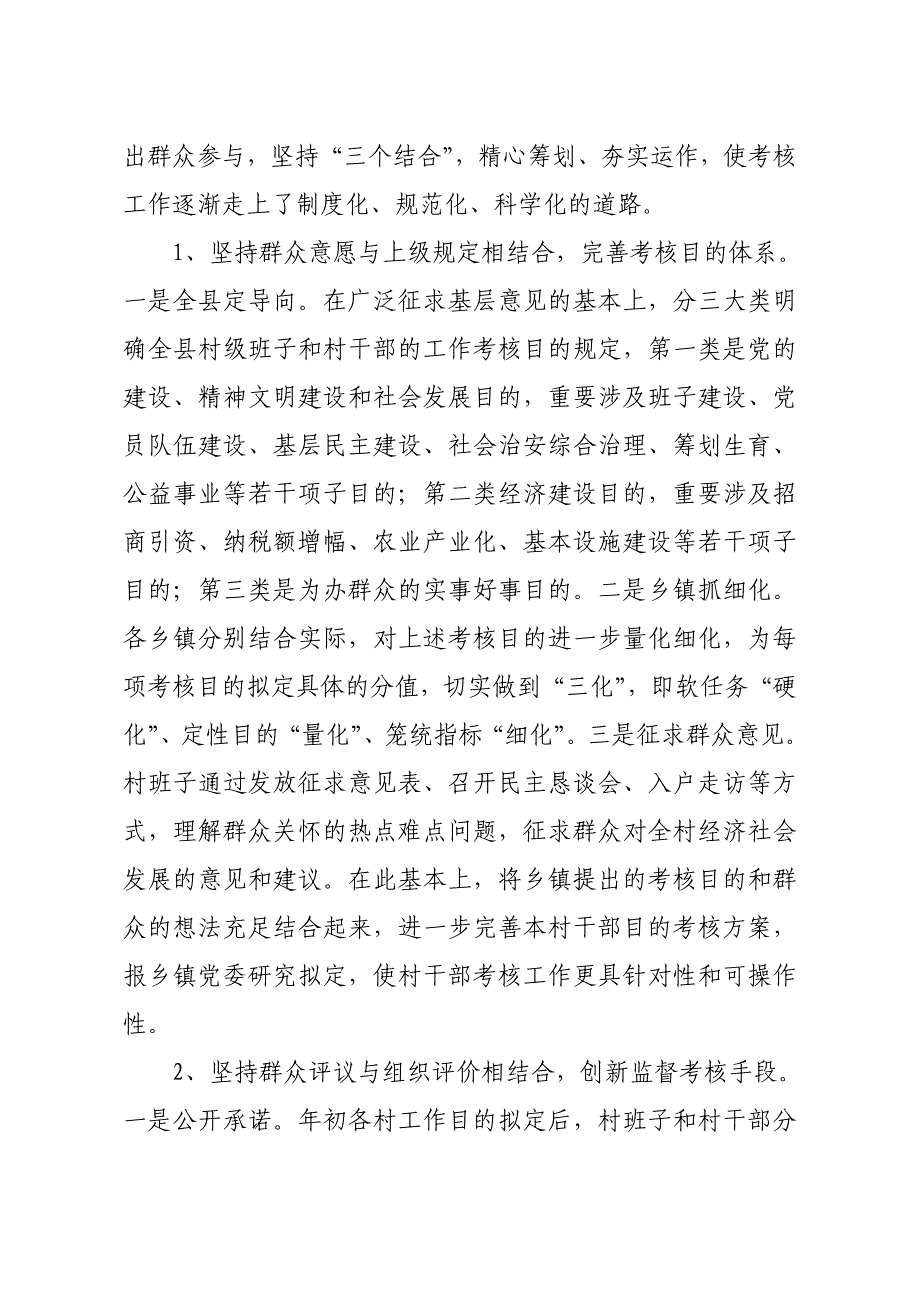 出群众参与，坚持“三个结合”，精心筹划、夯实运作，使考核
工作逐渐走上了制度化、规范化、科学化的道路。
1、坚持群众意愿与上级规定相结合，完善考核目的体系。
一是全县定导向。在广泛征求基层意见的基本上，分三大类明
确全县村级班子和村干部的工作考核目的规定，第一类是党的
建设、精神文明建设和社会发展目的，重要涉及班子建设、党
员队伍建设、基层民主建设、社会治安综合治理、筹划生育、
公益事业等若干项子目的；第二类经济建设目的，重要涉及招
商引资、纳税额增幅、农业产业化、基本设施建设等若干项子
目的；第三类是为办群众的实事好事目的。二是乡镇抓细化。
各乡镇分别结合实际，对上述考核目的进一步量化细化，为每
项考核目的拟定具体的分值，切实做到“三化”，即软任务“硬
化”、定性目的“量化”、笼统指标“细化”。三是征求群众意见。
村班子通过发放征求意见表、召开民主恳谈会、入户走访等方
式，理解群众关怀的热点难点问题，征求群众对全村经济社会
发展的意见和建议。在此基本上，将乡镇提出的考核目的和群
众的想法充足结合起来，进一步完善本村干部目的考核方案，
报乡镇党委研究拟定，使村干部考核工作更具针对性和可操作
性。
2、坚持群众评议与组织评价相结合，创新监督考核手段。
一是公开承诺。年初各村工作目的拟定后，村班子和村干部分